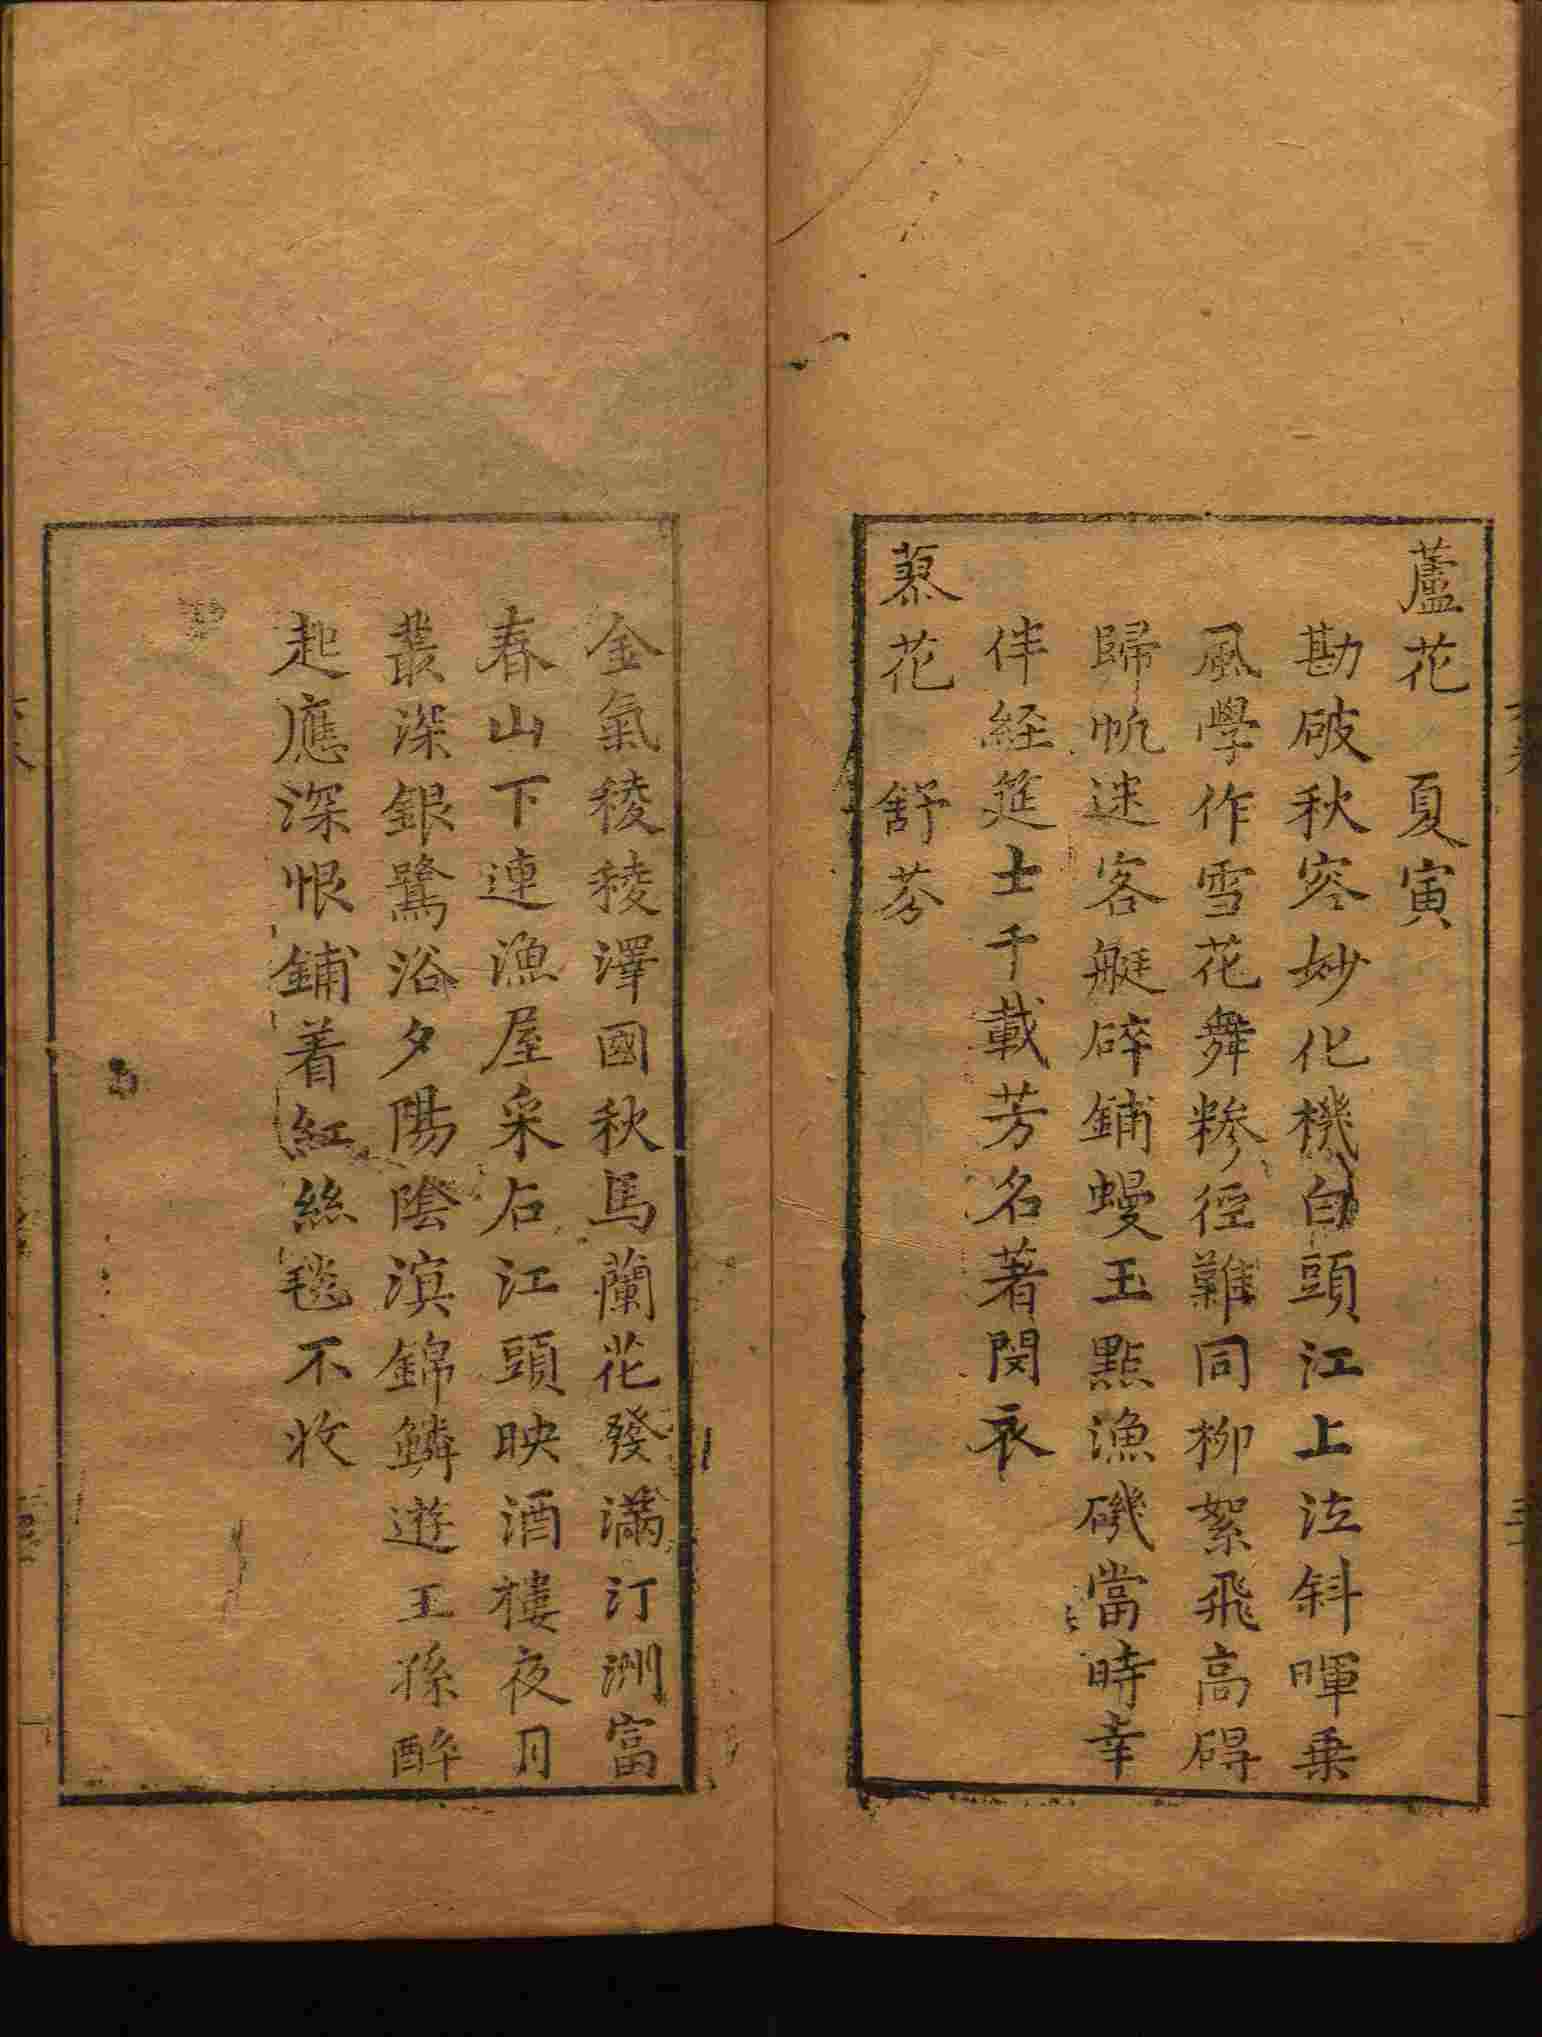 蘆花　夏寅
勘破秋容妙化機白頭江上泣斜暉乗
風學作雪花舞糝徑難同柳絮飛高碍
歸帆迷客艇碎鋪蝗玉點漁磯當時幸
伴経筵士千載芳名著閔衣
花　舒芬
金氣稜稜澤國秋馬蘭花發滿汀洲富
春山下連漁屋采石江頭映酒樓夜月
叢深銀鷺浴夕陽陰滨錦鱗遊王孫醉
起應深恨鋪着紅絲毯不收